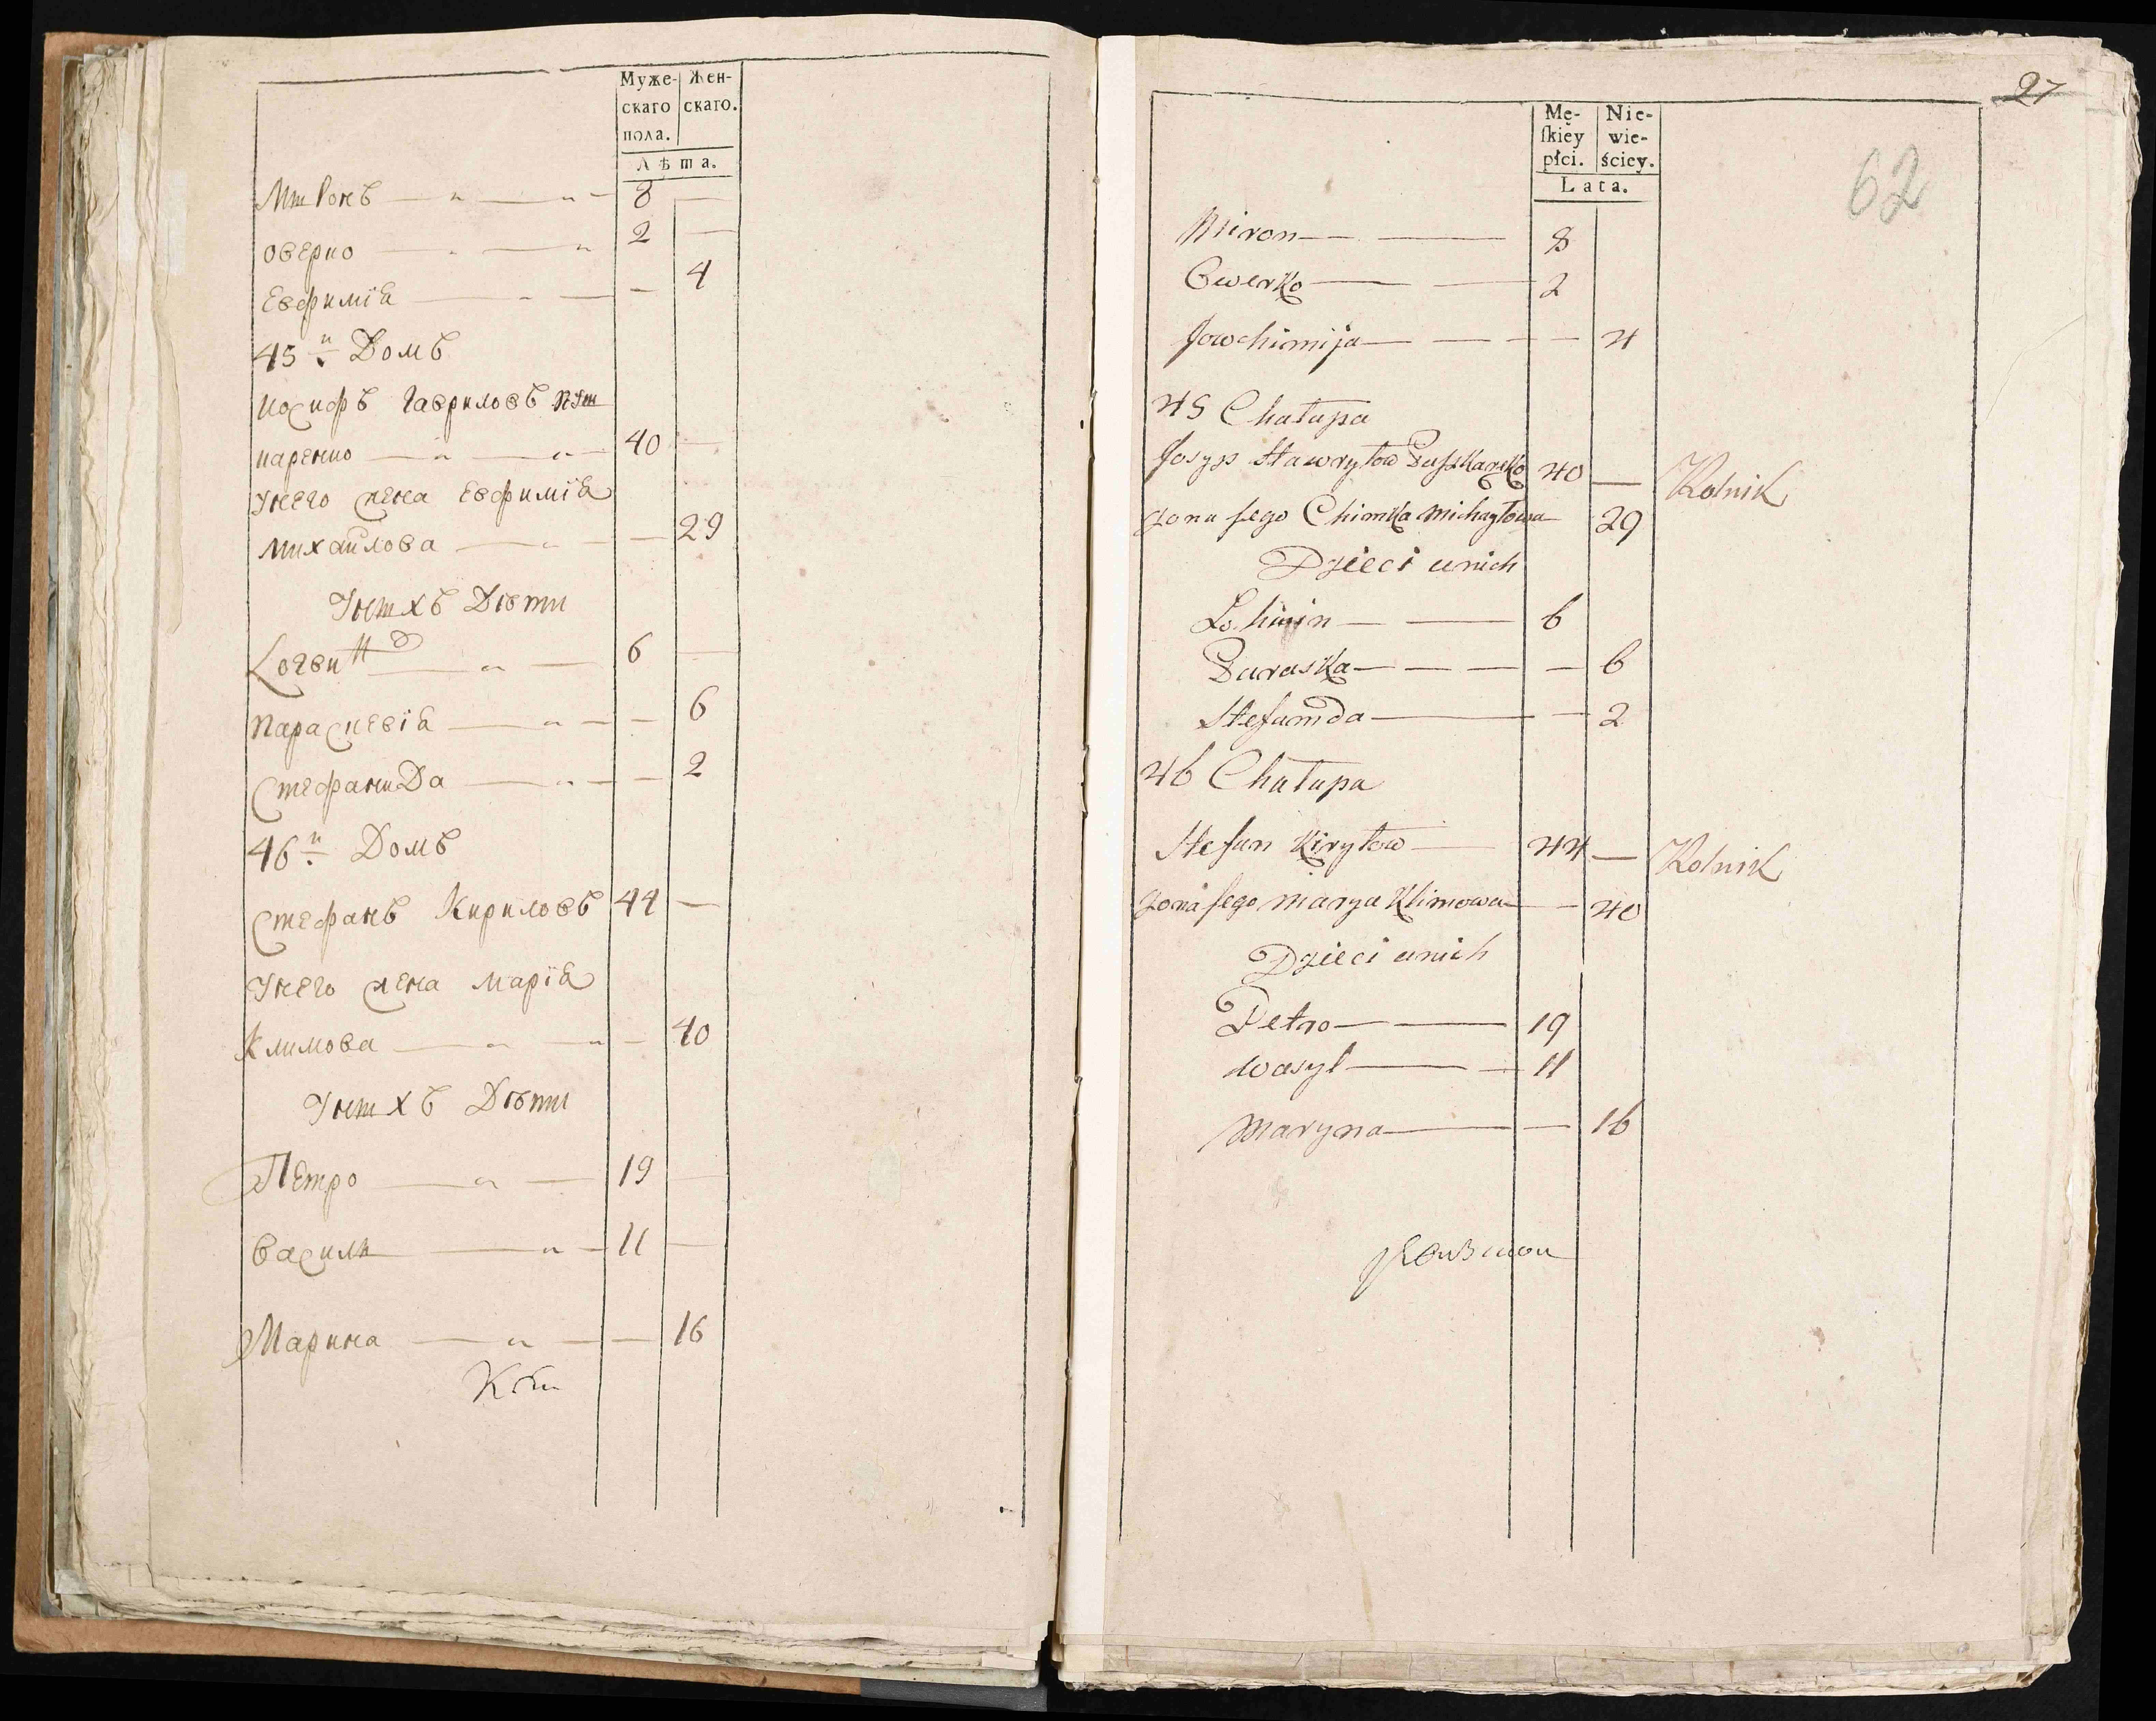 Муже- Жен-
скаго скаго.
пола.
Лѣта.
Миронъ — „ — „ — 8 —
оверко — „ — „ 2 —
Евфиміа — — — — 4
45й Домъ
иосифъ гавриловъ пуш
каренко — „ — „ — 40 —
Унего жена Евфиміа
михайлова — „ — — 29
Унихъ Дѣти
Логвин — „ — 6 —
параскевіа — „ — — 6
СтефаниДа — „ — — 2
46й Домъ
Стефанъ Кириловъ 44 —
Унего жена маріа
Климова — „ — „ — 40
Унихъ Дѣти
Петро — „ — 19 —
василь — „ — 11 —
Марина — „ — — 16
27
62
Mę- Nie-
ſkiey wie-
płci. ściey.
Lata.
Miron — — 8
Owerko — — 2
Jowchimija — — — — 4
45 Chałupa
Josyp Hawryłow Puszkarenko 40 — Rolnik
zona jego Chimka Michayłowa 29
Dzieci unich
Lohwin — — 6
Paraska — — — — 6
Stefanida — — 2
46 Chałupa
Stefan Kiryłow — 44 — Rolnik
zona jego Marya Klimowa — 40
Dzieci unich
Petro — — 19
Wasyl — — 11
Maryna — — 16